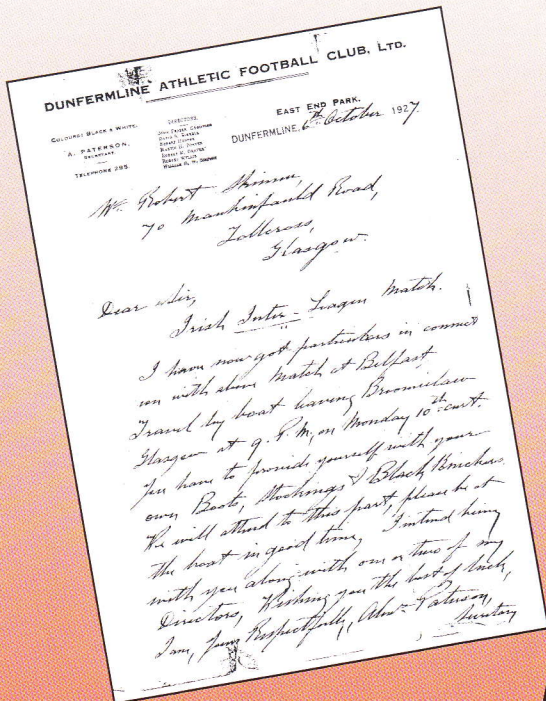 DUNFERMLINE ATHLETIC FOOTBALL CLUB, LTD.
COLOURS: BLACK & WHITE.
A. PATERSON,
SECRETARY.
TELEPHONE 295.
DIRECTORS.
EAST END PARK,
DUNFERMLINE, 6th October 1927.
Mr Robert Skinner,
70 Road,
Tollcross,
Glasgow.
Dear Sir,
Irish Inter-League Match.
I have now got particulars in connect
ion with above match at Belfast,
Travel by boat leaving Broomielaw
Glasgow at 9. P.M. on Monday 10th curt.
You have to provide yourself with your
own Boots, Stockings & Black Knickers.
We will attend to this part, please be at
the boat in good time, I intend being
with you along with one or two of my
Directors, Wishing you the best of luck,
I am, Yours Respectfully, Alexr Paterson,
Secretary